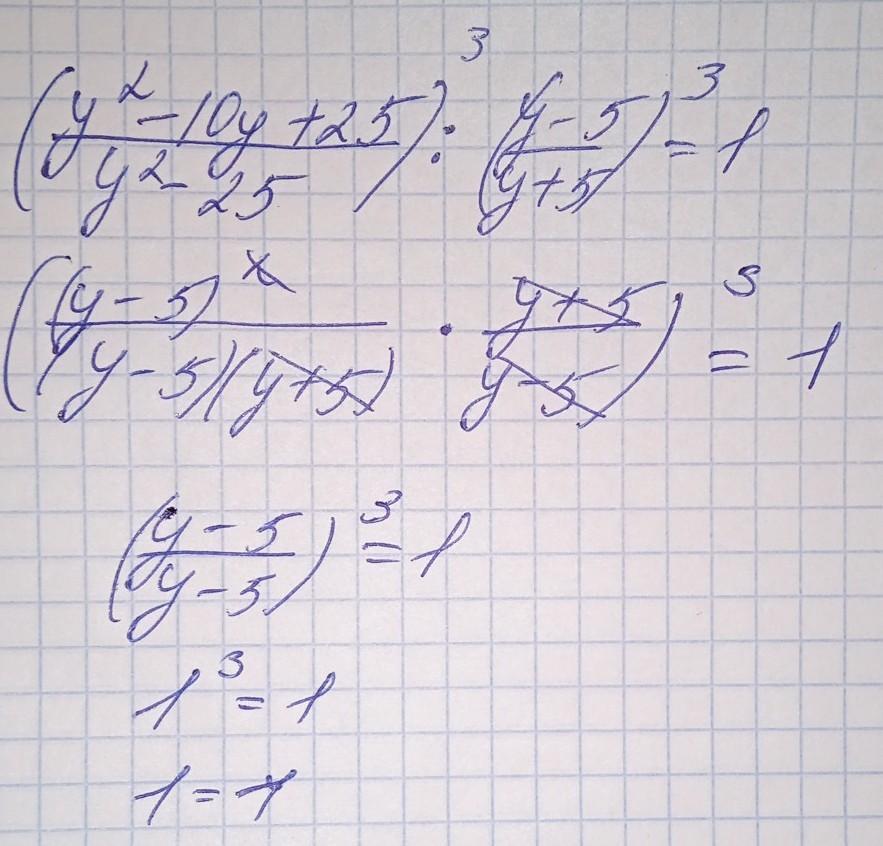 (y² - 10y + 25 / y² - 25)³ : (y - 5 / y + 5)³ = 1
((y - 5)² / (y - 5)(y + 5) · y + 5 / y - 5)³ = 1
(y - 5 / y - 5)³ = 1
1³ = 1
1 = 1